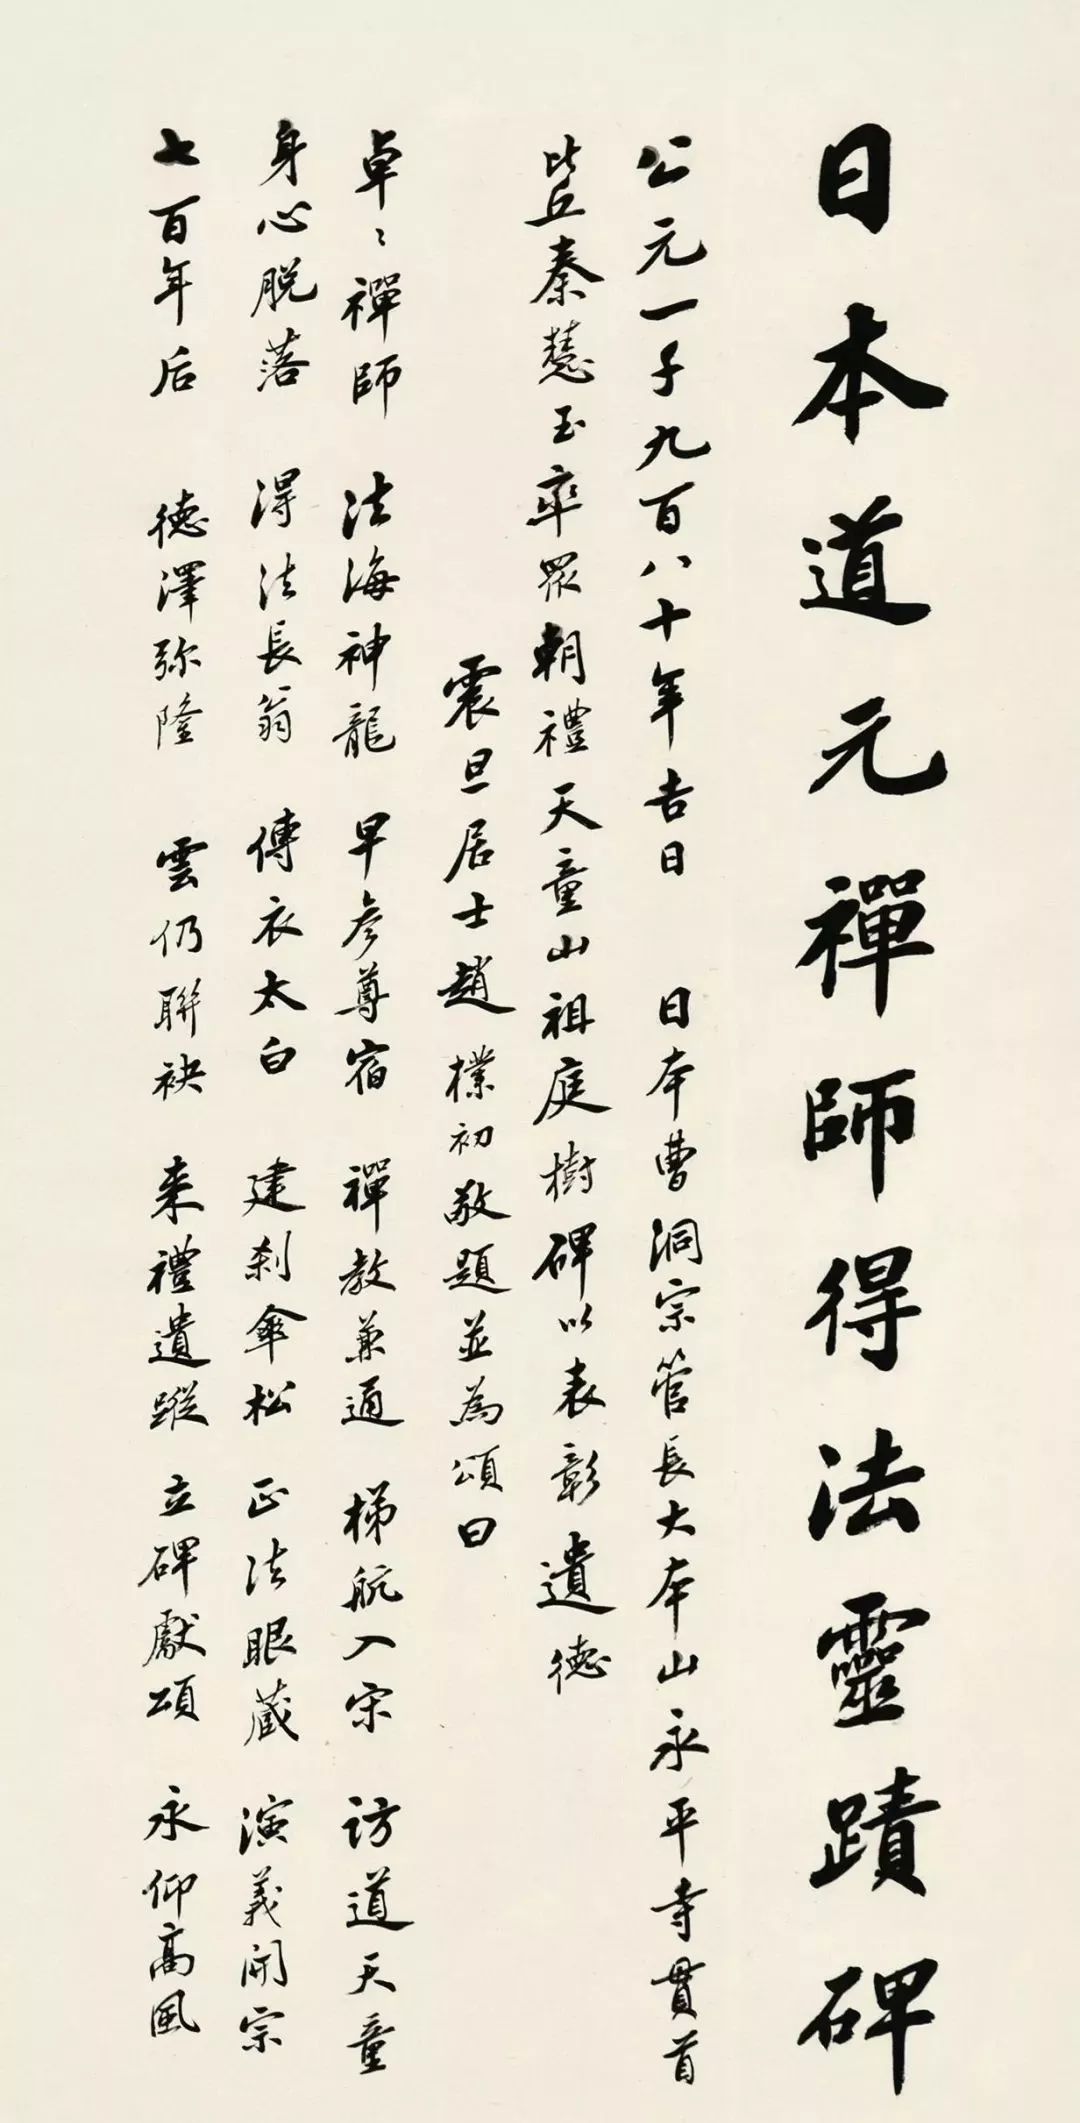 日本道元禪師得法靈蹟碑
公元一千九百八十年吉日 日本曹洞宗管長大本山永平寺貫首
比丘秦慧玉率眾朝禮天童山祖庭樹碑以表彰遺德
震旦居士趙樸初敬題並為頌曰
卓々禪師 法海神龍 早參尊宿 禪教兼通 梯航入宋 訪道天童
身心脱落 得法長翁 傳衣太白 建刹傘松 正法眼藏 演義開宗
七百年后 德澤弥隆 雲仍聯袂 来禮遺蹤 立碑獻頌 永仰高風